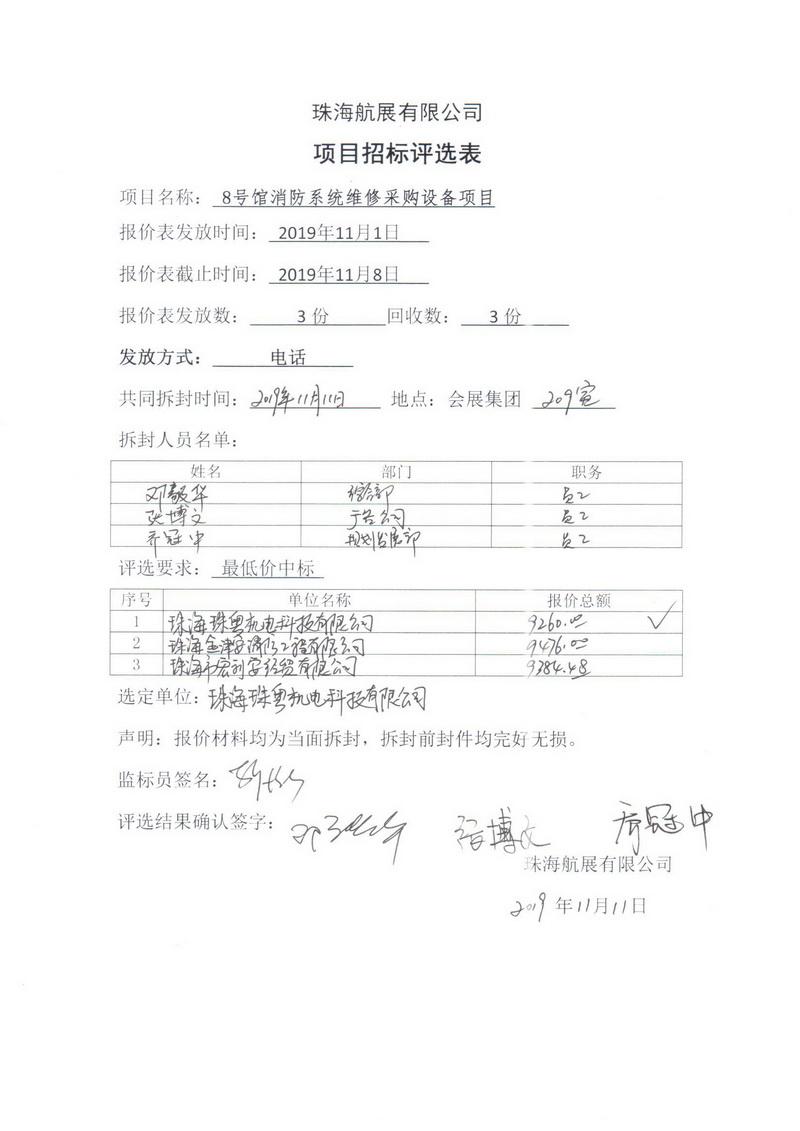 珠海航展有限公司
项目招标评选表
项目名称： 8号馆消防系统维修采购设备项目
报价表发放时间： 2019年11月1日
报价表截止时间： 2019年11月8日
报价表发放数： 3 份 回收数： 3 份
发放方式： 电话
共同拆封时间：2019年11月11日 地点：会展集团 209室
拆封人员名单：
姓名 部门 职务
邓毅华 综合部 员工
张博文 广告公司 员工
乔冠中 规划发展部 员工
评选要求： 最低价中标
序号 单位名称 报价总额
1 珠海珠粤机电科技有限公司 9260.00 ✓
2 珠海金津安消防工程有限公司 9476.00
3 珠海市宏利安经贸有限公司 9384.48
选定单位：珠海珠粤机电科技有限公司
声明：报价材料均为当面拆封，拆封前封件均完好无损。
监标员签名：
评选结果确认签字： 张博文 乔冠中
珠海航展有限公司
2019 年11月11日